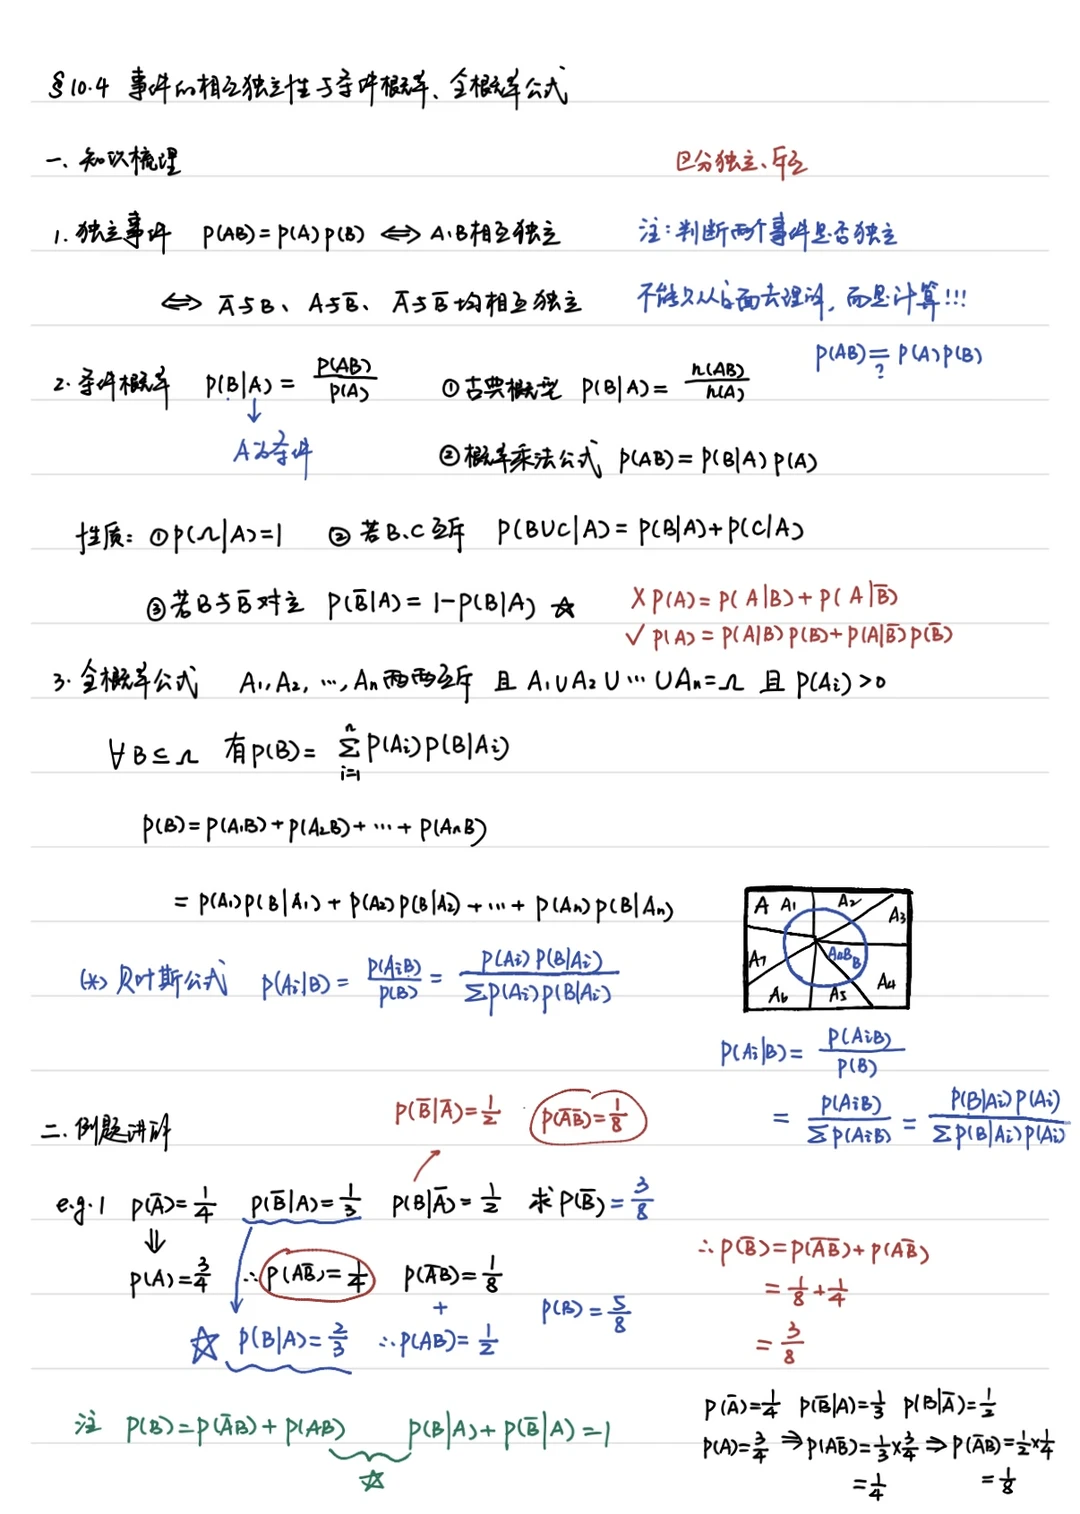 §10.4 事件的相互独立性与条件概率、全概率公式
一、知识梳理
区分独立、互斥
1. 独立事件 P(AB)=P(A)P(B) ⇔ A、B相互独立
注:判断两个事件是否独立
⇔ A̅与B、A与B̅、A̅与B̅均相互独立
不能只从字面去理解,而是计算!!!
P(AB)=P(A)P(B)
?
2. 条件概率 P(B|A)=P(AB)/P(A) ①古典概型 P(B|A)=n(AB)/n(A)
↓
A为条件
②概率乘法公式 P(AB)=P(B|A)P(A)
性质: ①P(Ω|A)=1 ②若B、C互斥 P(B∪C|A)=P(B|A)+P(C|A)
③若B与B̅对立 P(B̅|A)=1-P(B|A) ☆
× P(A)=P(A|B)+P(A|B̅)
✓ P(A)=P(A|B)P(B)+P(A|B̅)P(B̅)
3. 全概率公式 A₁,A₂,…,Aₙ两两互斥 且 A₁∪A₂∪…∪Aₙ=Ω 且 P(Aᵢ)>0
∀B⊆Ω 有P(B)=∑ⁿᵢ₌₁P(Aᵢ)P(B|Aᵢ)
P(B)=P(A₁B)+P(A₂B)+…+P(AₙB)
=P(A₁)P(B|A₁)+P(A₂)P(B|A₂)+…+P(Aₙ)P(B|Aₙ)
A A₁ A₂ A₃
A₇ B
A₆ A₅ A₄
(*) 贝叶斯公式 P(Aᵢ|B)=P(AᵢB)/P(B)=P(Aᵢ)P(B|Aᵢ)/∑P(Aᵢ)P(B|Aᵢ)
P(Aᵢ|B)=P(AᵢB)/P(B)
=P(AᵢB)/∑P(AᵢB)=P(B|Aᵢ)P(Aᵢ)/∑P(B|Aᵢ)P(Aᵢ)
二、例题讲解
P(B̅|A̅)=1/2 P(A̅B̅)=1/8
e.g.1 P(A̅)=1/4 P(B̅|A)=1/3 P(B|A̅)=1/2 求P(B̅)=3/8
⇓
P(A)=3/4 ∴P(AB̅)=1/4 P(A̅B)=1/8
+
P(B)=5/8
☆ P(B|A)=2/3 ∴P(AB)=1/2
∴P(B̅)=P(A̅B̅)+P(AB̅)
=1/8+1/4
=3/8
注 P(B)=P(A̅B)+P(AB) P(B|A)+P(B̅|A)=1
☆
P(A̅)=1/4 P(B̅|A)=1/3 P(B|A̅)=1/2
P(A)=3/4 ⇒P(AB̅)=1/3×3/4 ⇒P(A̅B)=1/2×1/4
=1/4 =1/8